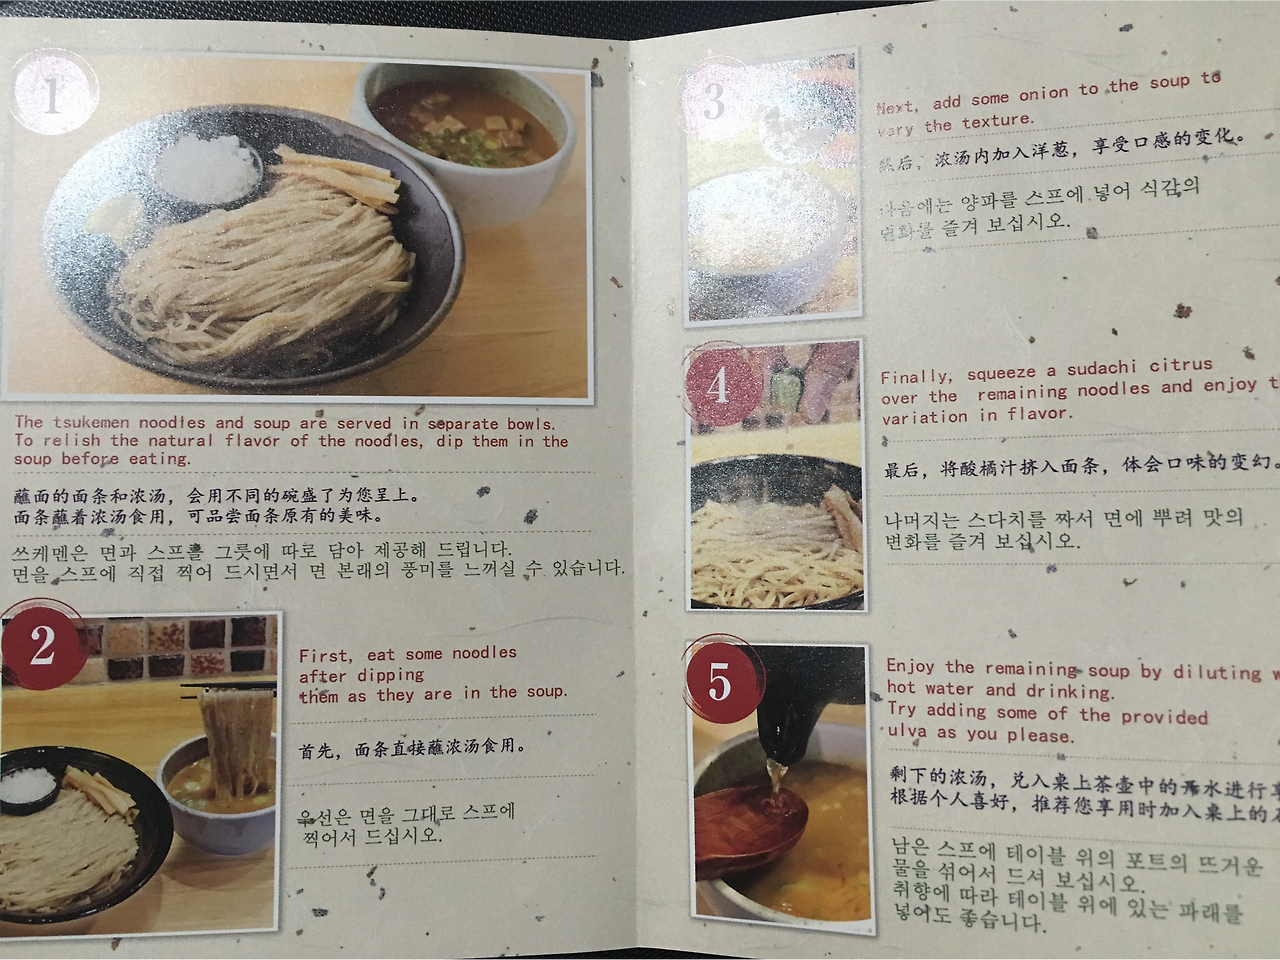 1
The tsukemen noodles and soup are served in separate bowls.
To relish the natural flavor of the noodles, dip them in the
soup before eating.
蘸面的面条和浓汤，会用不同的碗盛了为您呈上。
面条蘸着浓汤食用，可品尝面条原有的美味。
쓰케멘은 면과 스프를 그릇에 따로 담아 제공해 드립니다.
면을 스프에 직접 찍어 드시면서 면 본래의 풍미를 느껴실 수 있습니다.
2
First, eat some noodles
after dipping
them as they are in the soup.
首先，面条直接蘸浓汤食用。
우선은 면을 그대로 스프에
찍어서 드십시오.
3
Next, add some onion to the soup to
vary the texture.
然后，浓汤内加入洋葱，享受口感的变化。
다음에는 양파를 스프에 넣어 식감의
변화를 즐겨 보십시오.
4
Finally, squeeze a sudachi citrus
over the remaining noodles and enjoy
variation in flavor.
最后，将酸橘汁挤入面条，体会口味的变幻。
나머지는 스다치를 짜서 면에 뿌려 맛의
변화를 즐겨 보십시오.
5
Enjoy the remaining soup by diluting
hot water and drinking.
Try adding some of the provided
ulva as you please.
剩下的浓汤，兑入桌上茶壶中的开水进行
根据个人喜好，推荐您享用时加入桌上的
남은 스프에 테이블 위의 포트의 뜨거운
물을 섞어서 드셔 보십시오.
취향에 따라 테이블 위에 있는 파래를
넣어도 좋습니다.